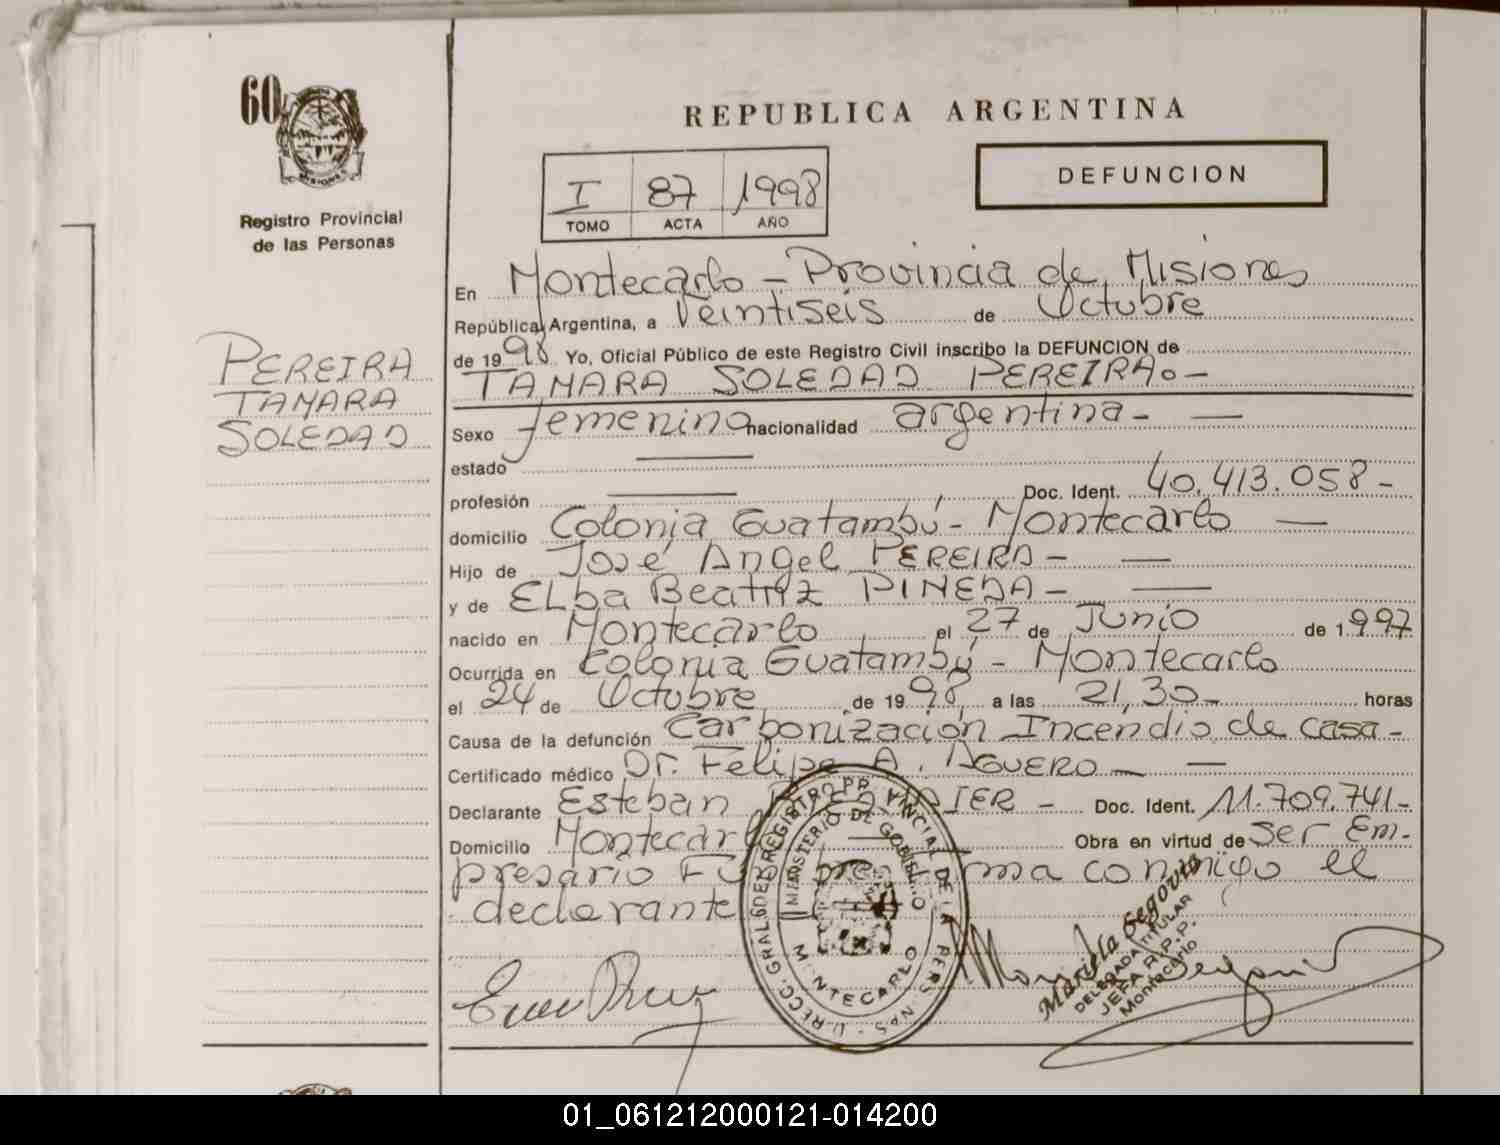 60
REPUBLICA ARGENTINA
DEFUNCION
I 87 1998
TOMO ACTA AÑO
Registro Provincial
de las Personas
PEREIRA
TAMARA
SOLEDAD
En Montecarlo - Provincia de Misiones
República Argentina, a Veintiseis de Octubre
de 1998 Yo, Oficial Público de este Registro Civil inscribo la DEFUNCION de
TAMARA SOLEDAD PEREIRA.-
Sexo femenino nacionalidad argentina - —
estado —
profesión — Doc. Ident. 40.413.058-
domicilio Colonia Guatambú - Montecarlo —
Hijo de José Angel PEREIRA - —
y de ELba Beatriz PINEDA - —
nacido en Montecarlo el 27 de Junio de 1.997
Ocurrida en Colonia Guatambú - Montecarlo
el 24 de Octubre de 1998, a las 21,30- horas
Causa de la defunción Carbonización Incendio de casa-
Certificado médico Dr. Felipe A. AGUERO - —
Declarante Esteban - Doc. Ident. 11.709.741-
Domicilio Montecarlo Obra en virtud de Ser Em-
presario Funebre firma conmigo el
declarante
U RECC. GRAL. DEL REGISTRO PROVINCIAL DE LA PERSONAS
MINISTERIO DE GOBIERNO
MONTECARLO
Mariela Segovia
DELEGADA TITULAR
JEFA R.P.P.
Montecarlo
MISIONES
01_061212000121-014200